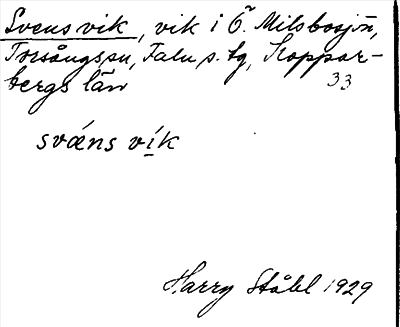 Svens vik, vik i Ö. Milsbosjön,
Torsångs sn, Falu s. tg, Koppar-
bergs län 33
svǽns vík
Harry Ståhl 1929